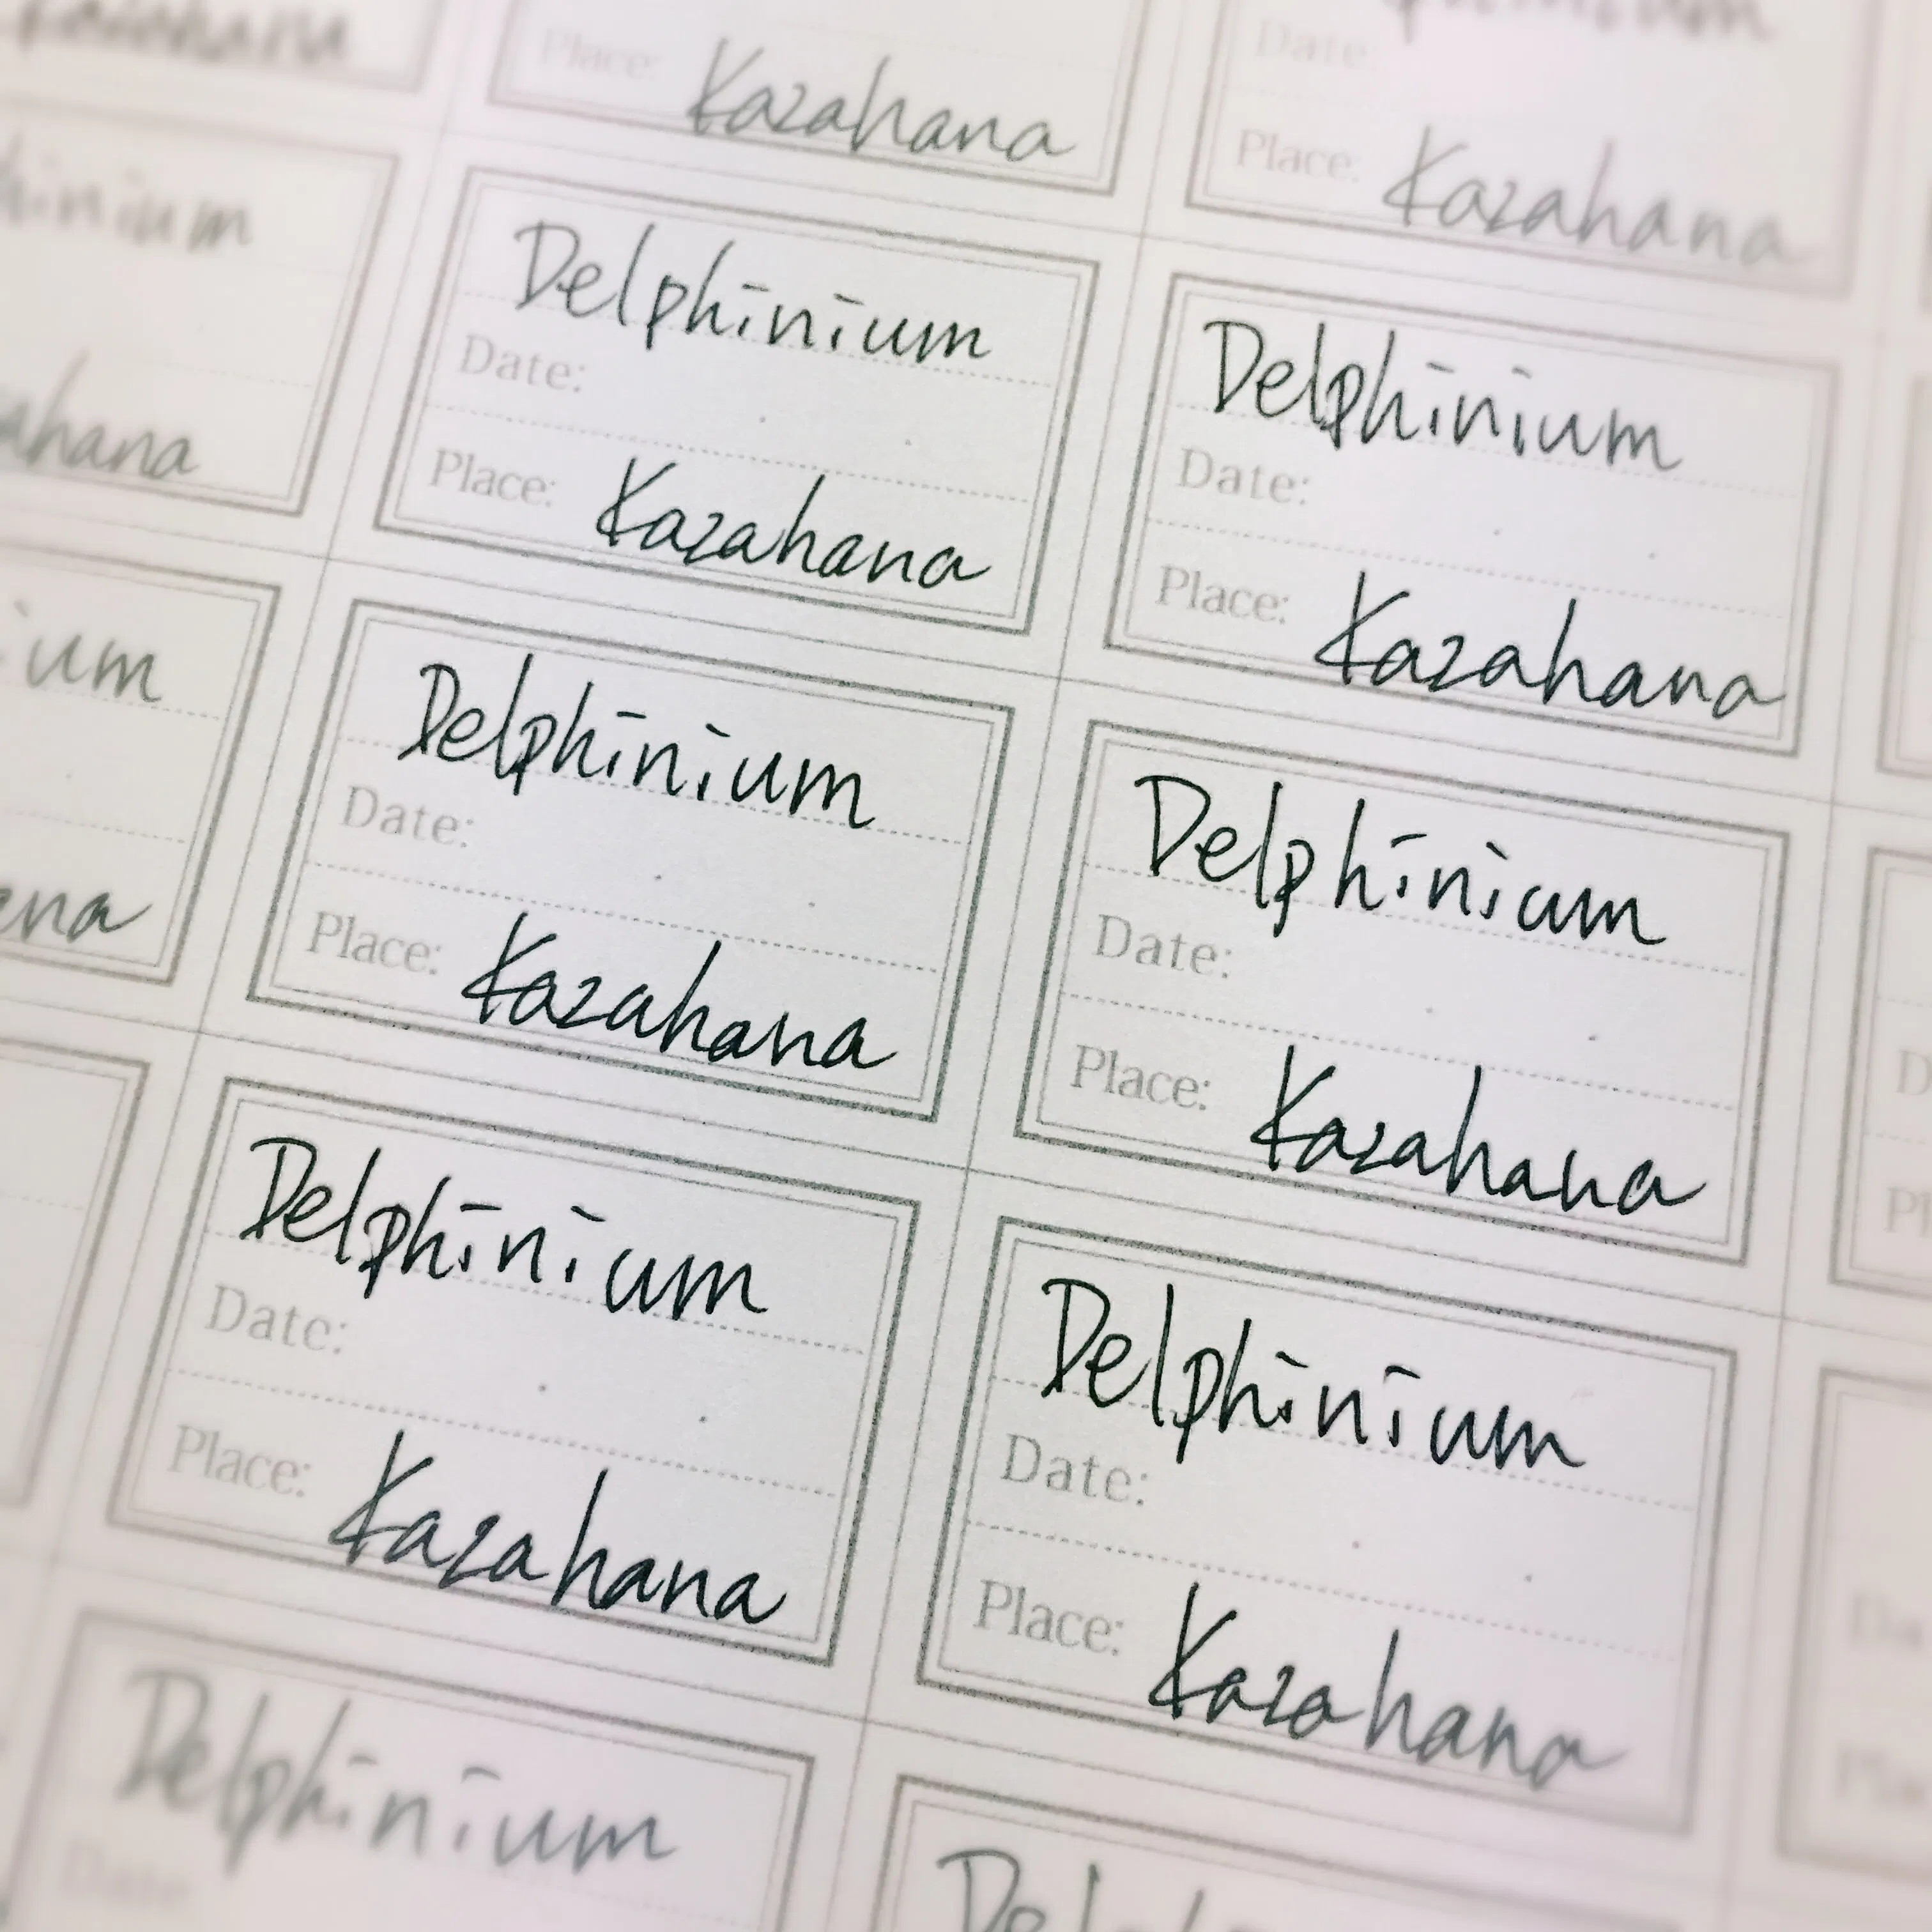 Kazahana
Place: Kazahana
Date:
Place: Kazahana
hinium
ahana
Delphinium
Date:
Place: Kazahana
Delphinium
Date:
Place: Kazahana
ium
ana
Delphinium
Date:
Place: Kazahana
Delphinium
Date:
Place: Kazahana
Delphinium
Date:
Place: Kazahana
Delphinium
Date:
Place: Kazahana
Delphinium
Date
Del